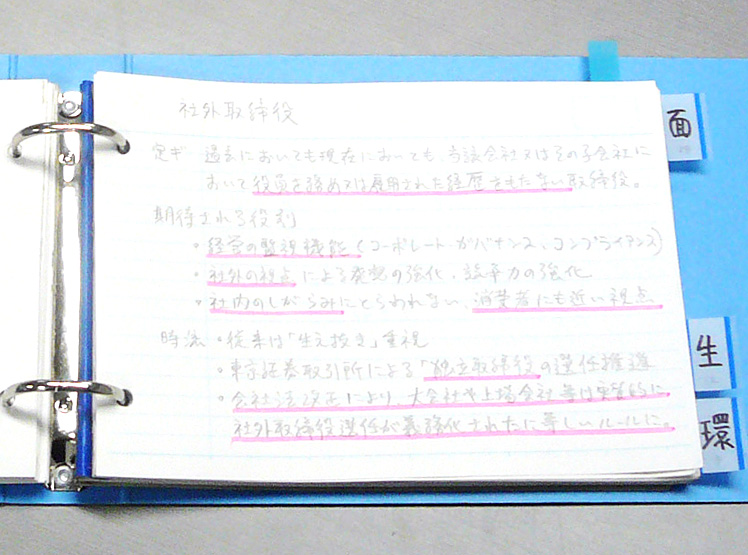 社外取締役
定ギ 過去においても現在においても、当該会社又はその子会社に
おいて役員を務め又は雇用された経歴をもたない取締役。
期待される役割
・経営の監視機能(コーポレート・ガバナンス、コンプライアンス)
・社外の視点による発想の強化、競争力の強化
・社内のしがらみにとらわれない、消費者にも近い視点
時流 ・従来は「生え抜き」重視
・東京証券取引所による「独立取締役」の選任推進
・会社法改正により、大会社や上場会社等は実質的に
社外取締役選任が義務化されたに等しいルールに。
面
生
環